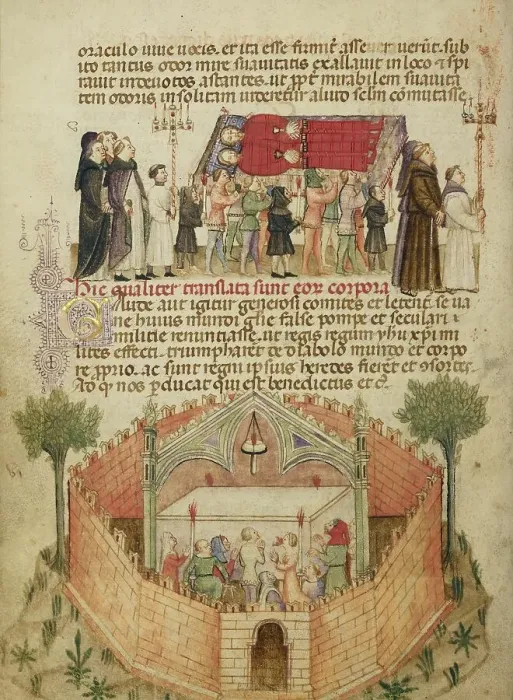 oraculo uiue uocis. et ita esse firmit asseuer uerūt. sub
ito tantus odor mire suauitatis exallauit in loco & spi
rauit in deuotos astantes. ut ꝓpt mirabilem suauita
tem odoris insolitam uideretur aliud sclm cōmutasse.
Hic qualiter translata sunt eoꝝ corpora
Gaude aut igitur generosi comites et letent. se ua
ne huius mundi glie false pompe et seculari
militie renuntiasse. ut regis regum yhu xp̄i mi
lites effecti. triumpharēt de diabolo mundo et corpo
re ꝓprio. ac sunt regni ipsius heredes fierēt et ꝯsortes.
Ad qͦ nos ꝑducat qui est benedictus et c̄.